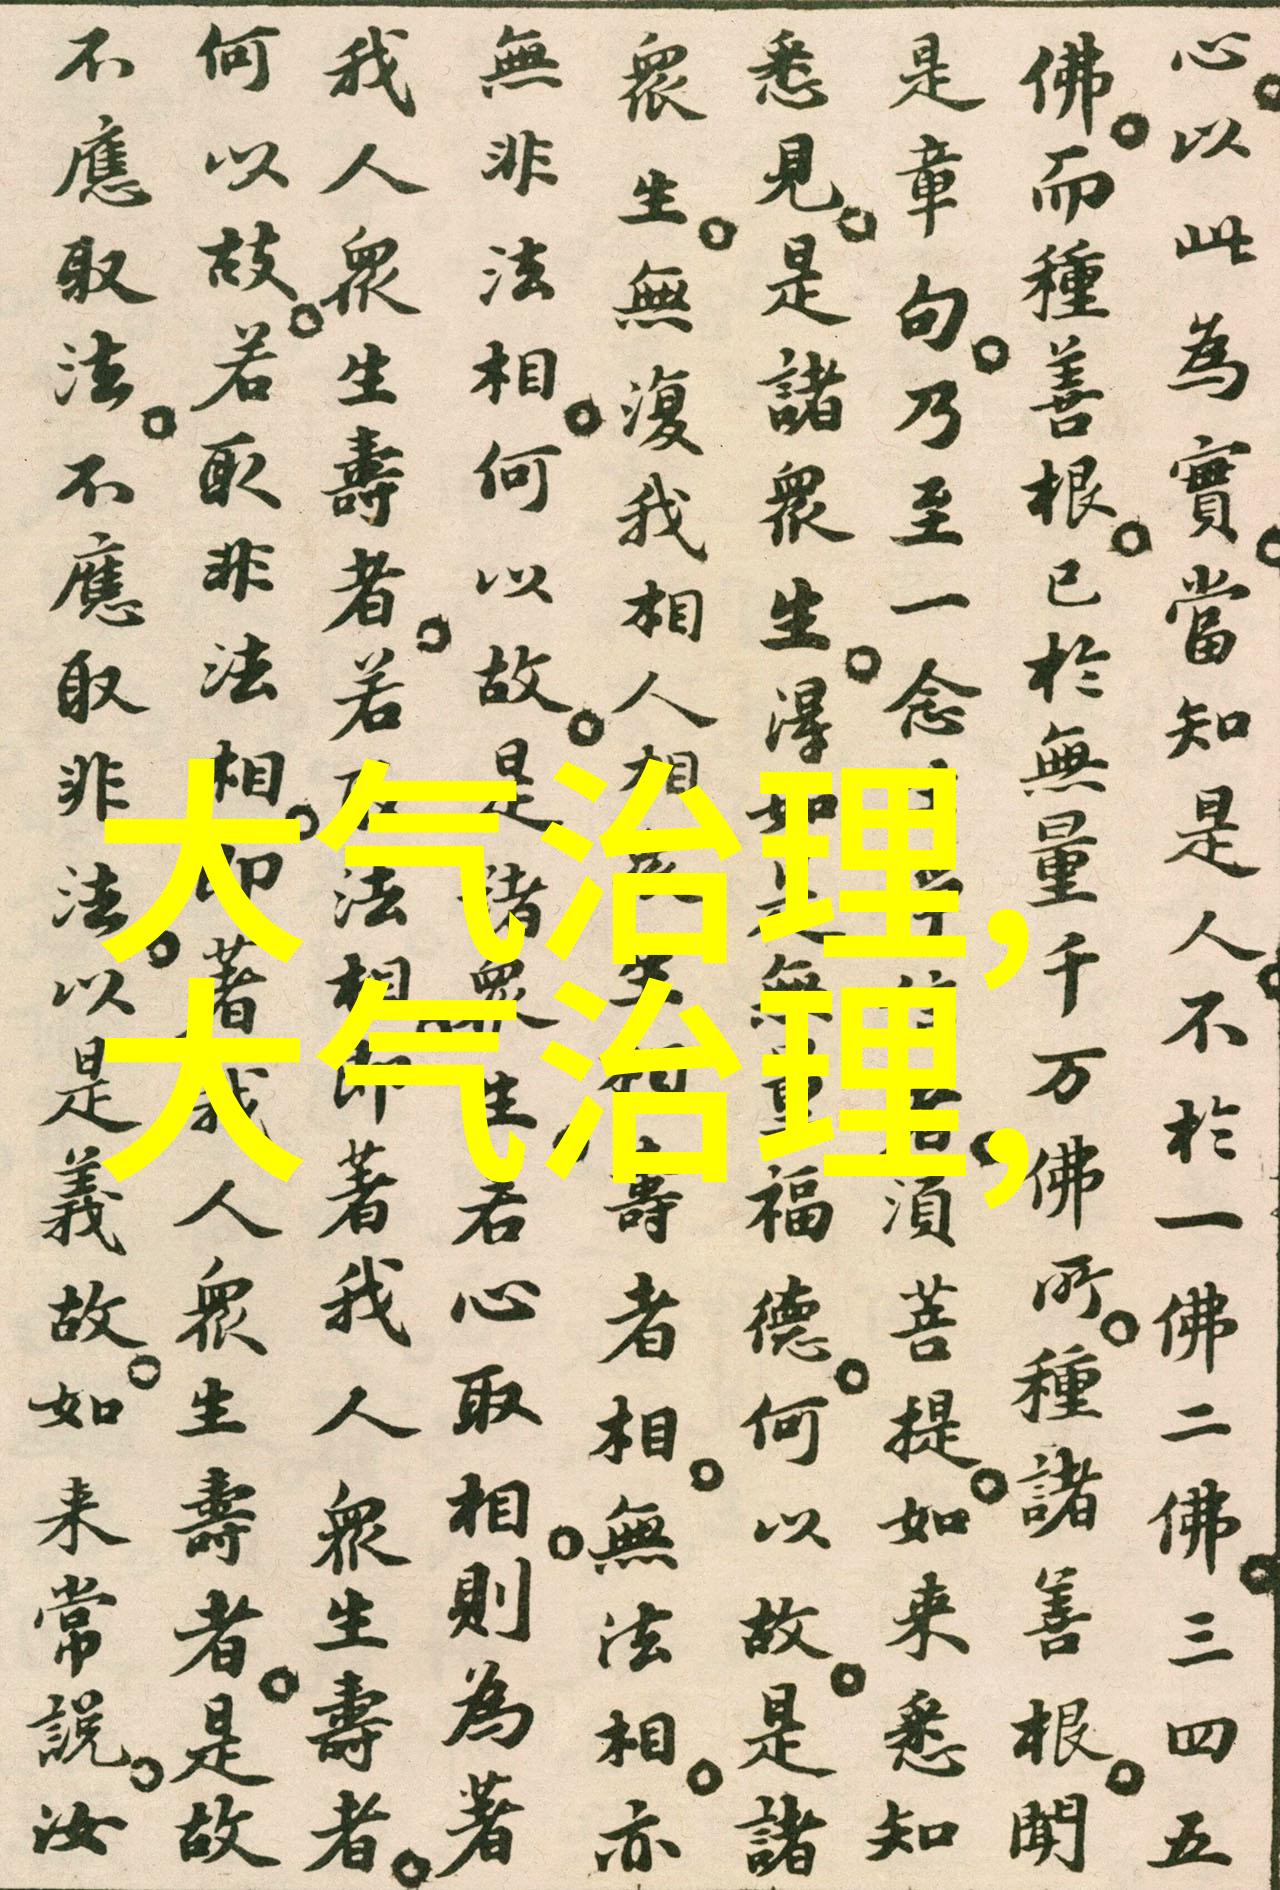 心以此為實當知是人不於一佛二佛三四五
佛而種善根已於無量千万佛所種諸善根聞
是章句乃至一念須菩提如来悉知
悉見是諸衆生得如是無量福德何以故是諸
衆生無復我相人相生相壽者相無法相亦
無非法相何以故是諸衆生若心取相則為著
我人衆生壽者若法相即著我人衆生壽者
何以故若取非法相即著我人衆生壽者是故
不應取法不應取非法以是義故如来常説汝
大气治理,
大气治理,